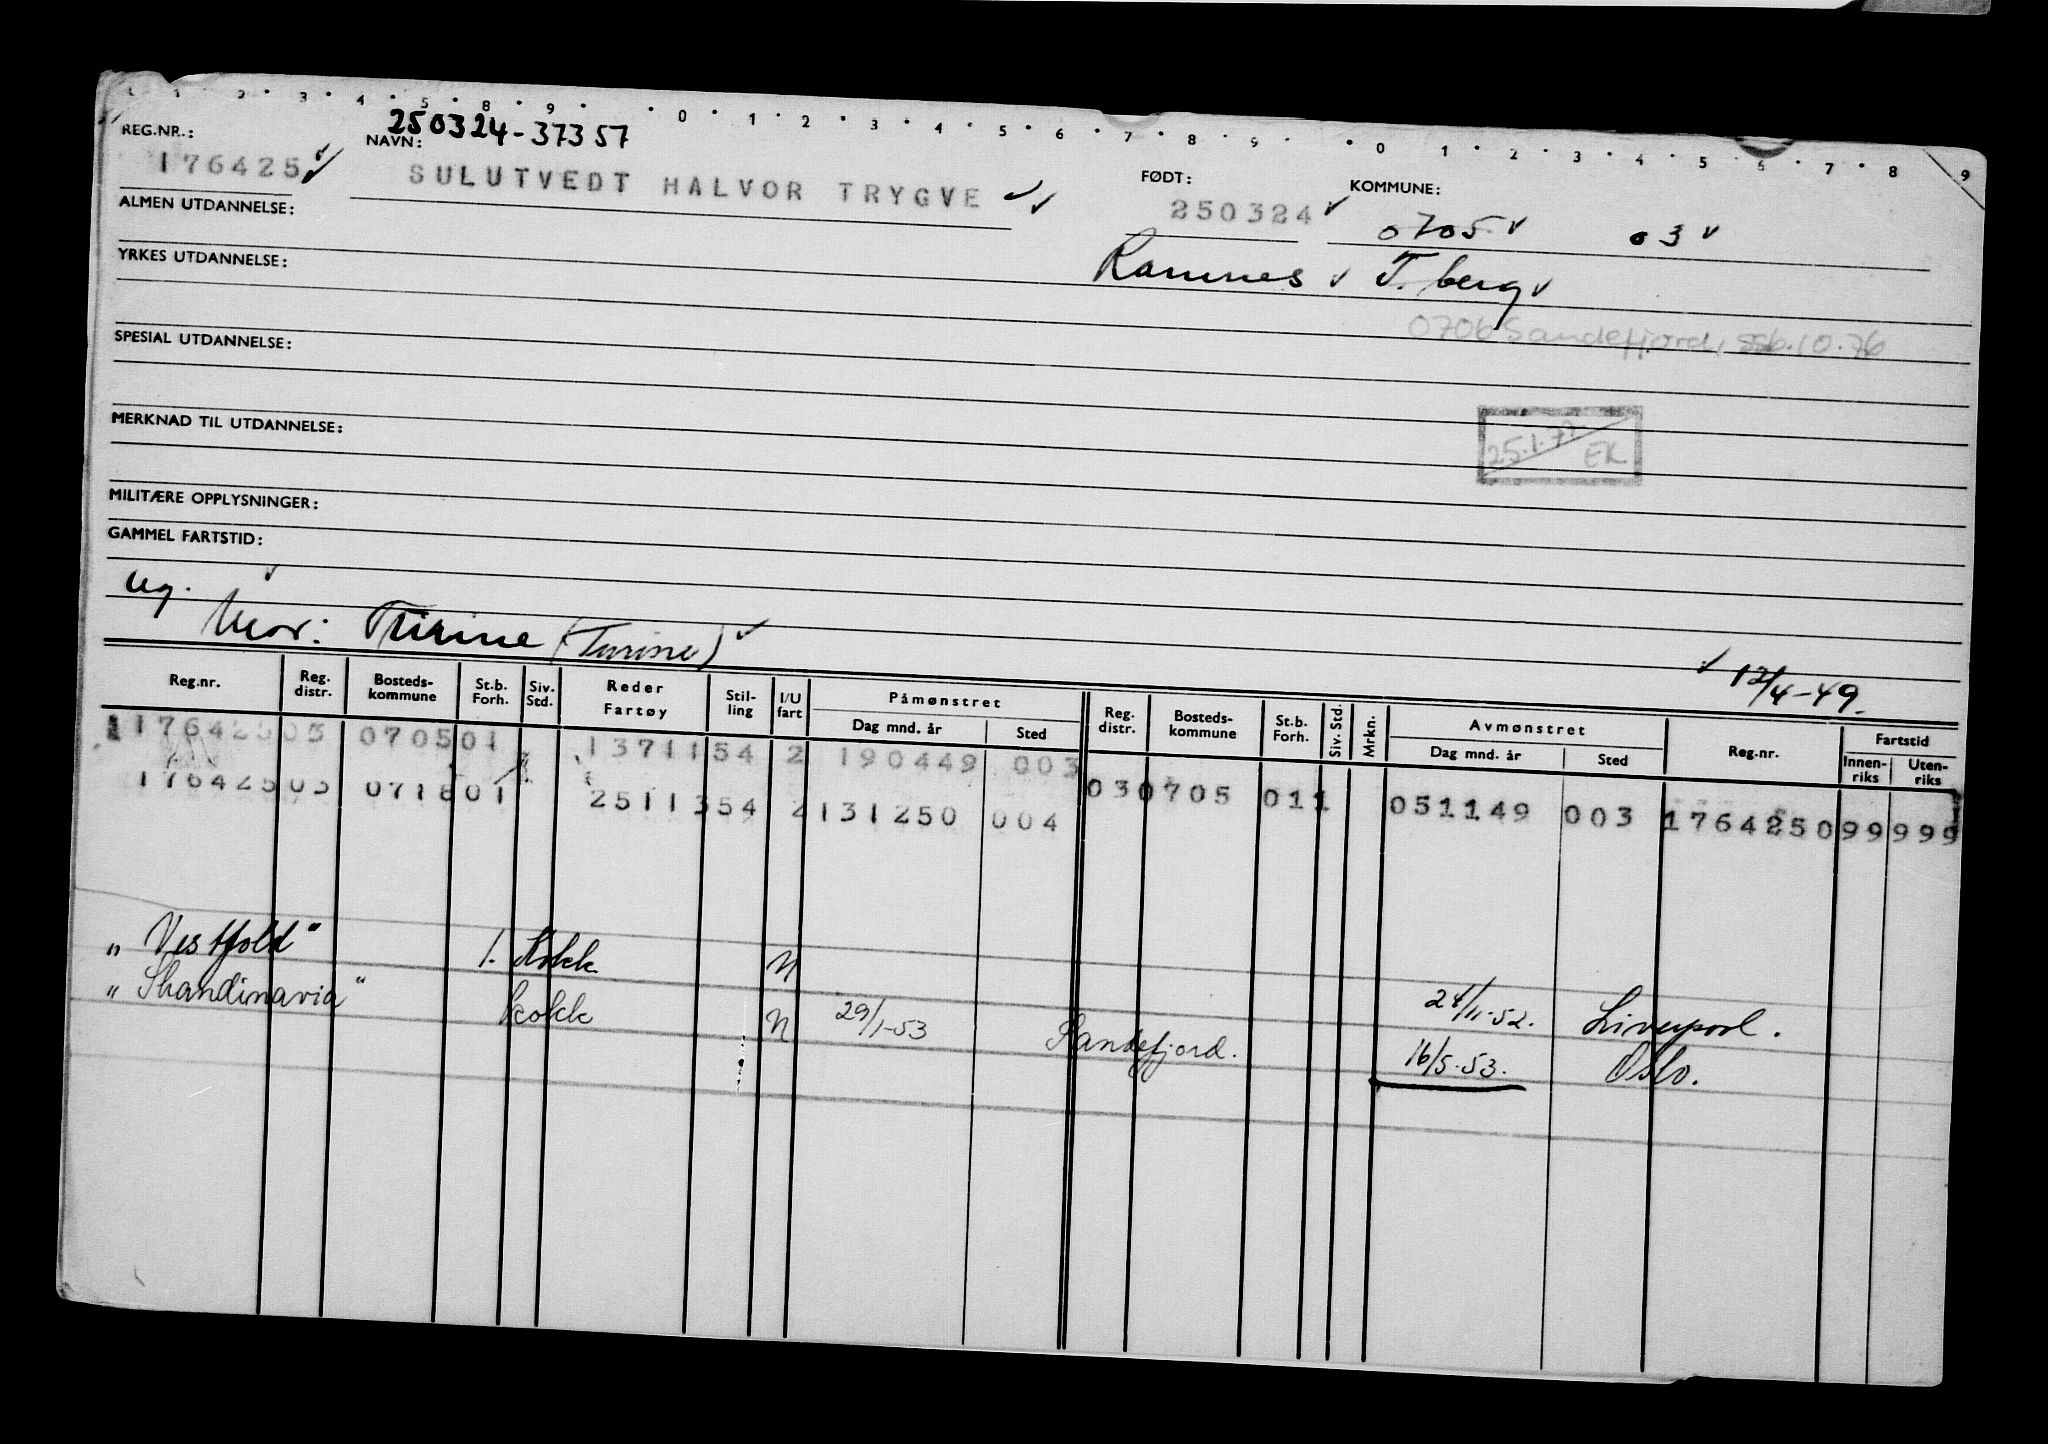 1 2 3 4 5 8 9 0 1 2 3 4 5 6 7 8 9 0 1 2 3 4 5 6 7 8 9
250324-37357
REG.NR.: NAVN: FØDT: KOMMUNE:
176425 SULUTVEDT HALVOR TRYGVE 250324 0705 03
ALMEN UTDANNELSE:
Ramnes T.berg
YRKES UTDANNELSE:
0706 Sandefjord, SSB.10.76
SPESIAL UTDANNELSE:
MERKNAD TIL UTDANNELSE:
25.1.72 EK
MILITÆRE OPPLYSNINGER:
GAMMEL FARTSTID:
ug.
Mor: Turine (Turine)
12/4-49.
Reg.nr. Reg. distr. Bosteds-kommune St.b. Forh. Siv. Std. Reder Fartøy Stil-ling I/U fart Påmønstret Dag mnd. år Sted Reg. distr. Bosteds-kommune St.b. Forh. Siv. Std. Mrkn. Avmønstret Dag mnd. år Sted Reg.nr. Fartstid Innen-riks Uten-riks
17642505 070501 1371154 2 190449 003
030705 011 051149 003 176425099999
17642503 071801 2511354 2 131250 004
"Vestfold" 1. Kokk N 24/11-52. Liverpool.
"Skandinavia" kokk N 29/1-53 Sandefjord. 16/5-53. Oslo.